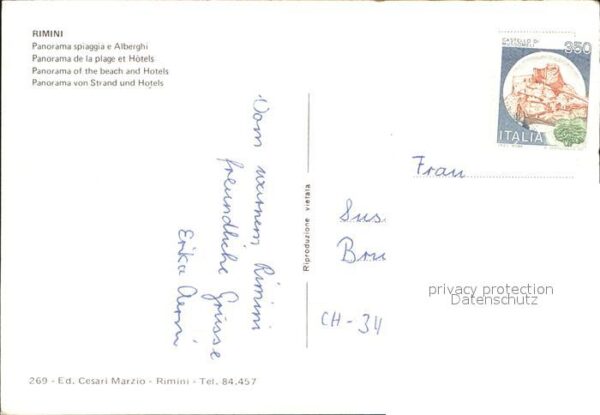 RIMINI
Panorama spiaggia e Alberghi
Panorama de la plage et Hôtels
Panorama of the beach and Hotels
Panorama von Strand und Hotels
Vom warmem Rimini
freundliche Grüsse
Erika Aerni
Riproduzione vietata
CASTELLO DI
MUSSOMELI
350
ITALIA
Frau
Sus
Bru
CH-34
privacy protection
Datenschutz
269 - Ed. Cesari Marzio - Rimini - Tel. 84.457